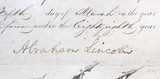 day of March in the year
and of the Eighty-eighth year
Abraham Lincoln